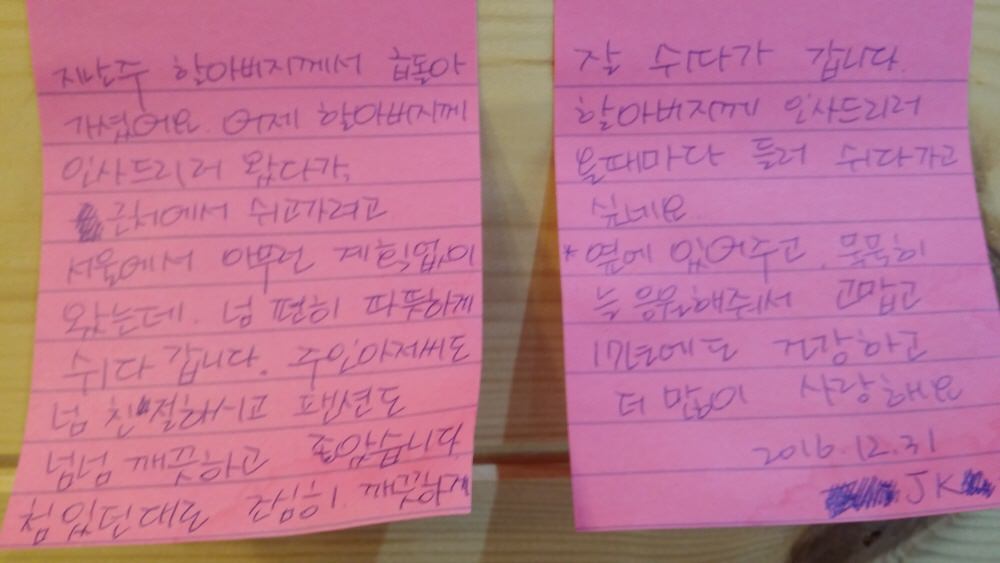 지난주 할아버지께서 휩돌아
가셨어요. 어제 할아버지께
인사드리러 왔다가,
근처에서 쉬고가려고
서울에서 아무런 계획없이
왔는데. 넘 편히 따뜻하게
쉬다 갑니다. 주인아저씨도
넘 친절하시고 팬션도
넘넘 깨끗하고 좋았습니다
첨있던대로 조심히 깨끗하게
잘 쉬다가 갑니다.
할아버지께 인사드리러
올때마다 들러 쉬다가고
싶네요.
* 옆에 있어주고, 묵묵히
늘 응원해줘서 고맙고
17년에도 건강하고
더 많이 사랑해요
2016.12.31
JK